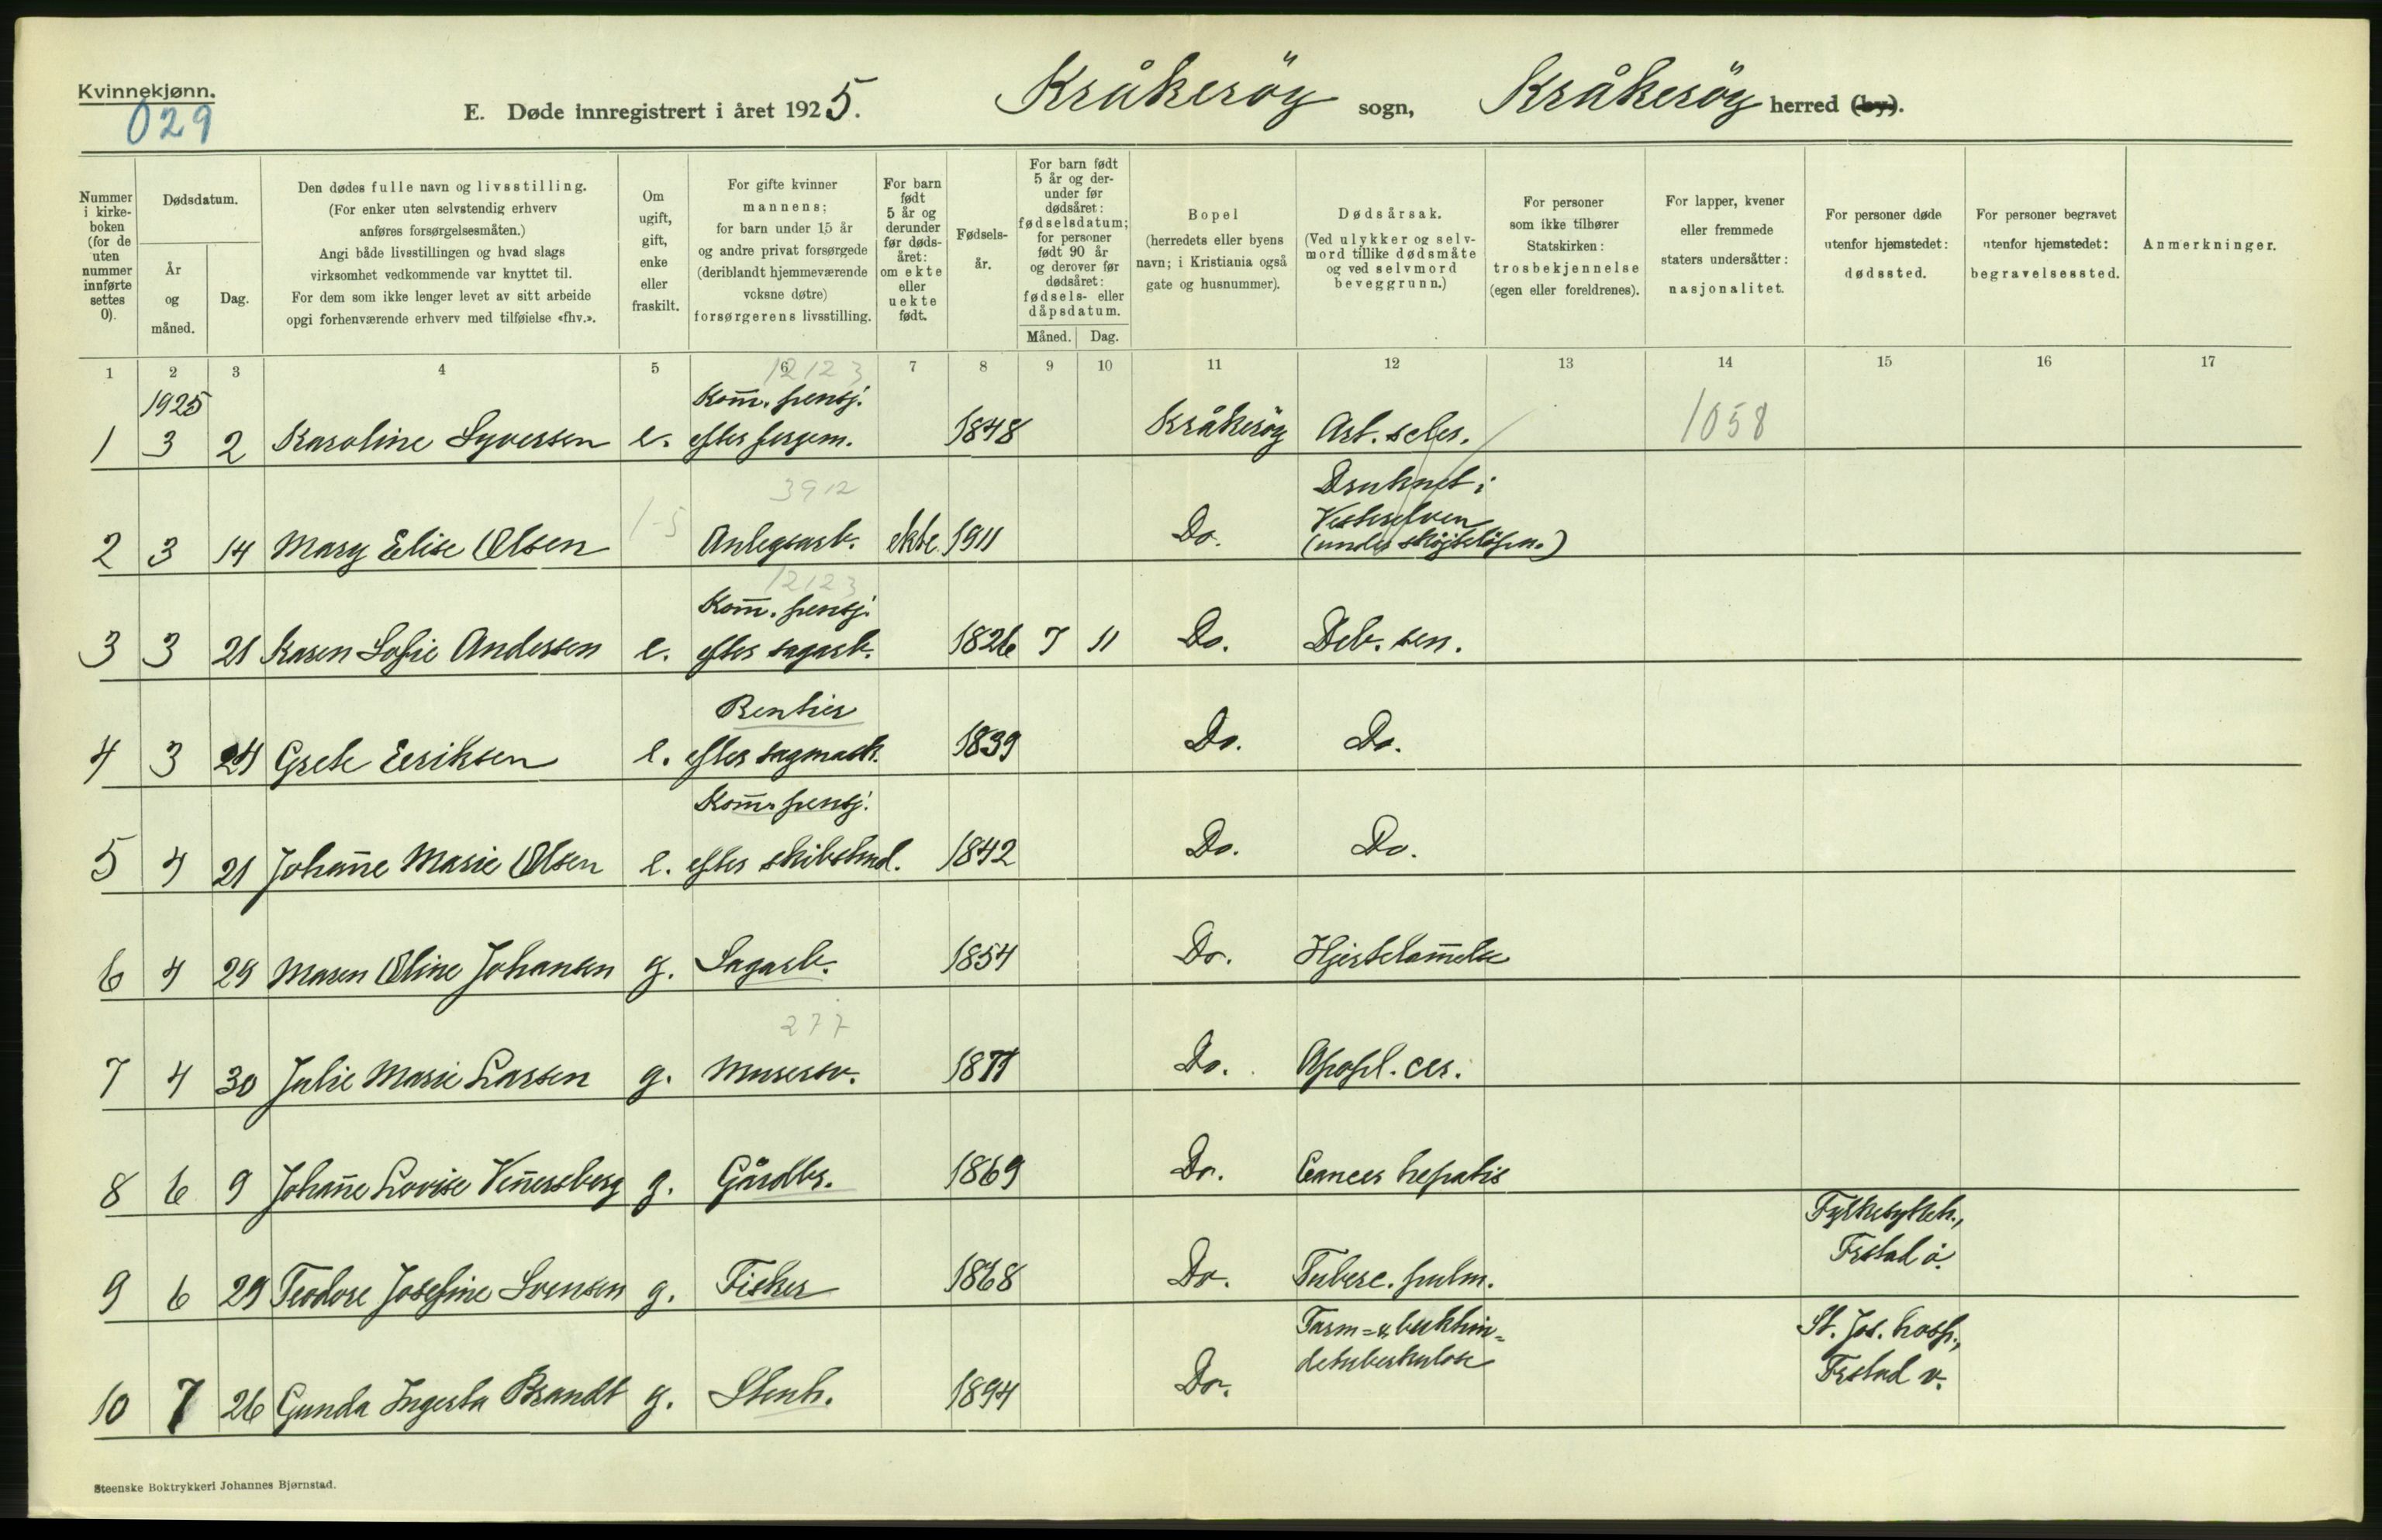 Kvinnekjønn.
029
E. Døde innregistrert i året 1925. Kråkerøy sogn, Kråkerøy herred (by).
Nummer i kirke-boken (for de uten nummer innførte settes 0).
Dødsdatum.
År og måned.
Dag.
Den dødes fulle navn og livsstilling.
(For enker uten selvstendig erhverv
anføres forsørgelsesmåten.)
Angi både livsstillingen og hvad slags
virksomhet vedkommende var knyttet til.
For dem som ikke lenger levet av sitt arbeide
opgi forhenværende erhverv med tilføielse «fhv.».
Om ugift, gift, enke eller fraskilt.
For gifte kvinner
mannens;
for barn under 15 år
og andre privat forsørgede
(deriblandt hjemmeværende
voksne døtre)
forsørgerens livsstilling.
For barn født 5 år og derunder før døds-året: om ekte eller uekte født.
Fødsels-år.
For barn født 5 år og der-under før dødsåret: fødselsdatum; for personer født 90 år og derover før dødsåret: fødsels- eller dåpsdatum.
Måned. Dag.
Bopel
(herredets eller byens
navn; i Kristiania også
gate og husnummer).
Dødsårsak.
(Ved ulykker og selv-
mord tillike dødsmåte
og ved selvmord
beveggrunn.)
For personer
som ikke tilhører
Statskirken:
trosbekjennelse
(egen eller foreldrenes).
For lapper, kvener
eller fremmede
staters undersåtter:
nasjonalitet.
For personer døde
utenfor hjemstedet:
dødssted.
For personer begravet
utenfor hjemstedet:
begravelsessted.
Anmerkninger.
1 2 3 4 5 6 7 8 9 10 11 12 13 14 15 16 17
12123
1925 Kom̄. pensj.
1 3 2 Karoline Syversen e. efter fergem. 1848 Kråkerøy Art. scler. 1058
3912 Druknet i
Vesterelven
2 3 14 Mary Elise Olsen 1-5 Anlegsarb. ekte 1911 Do. (under skøjteløpn.)
12123
Kom̄. pensj.
3 3 21 Karen Sofie Andersen e. efter sagarb. 1826 7 11 Do. Deb. sen.
Rentier
4 3 24 Grete Eriksen e. efter sagmark. 1839 Do. Do.
Kom̄. pensj.
5 4 21 Johan̄e Marie Olsen e. efter skibstmd. 1842 Do. Do.
6 4 29 Maren Oline Johansen g. Sagarb. 1854 Do. Hjertelam̄else
277
7 4 30 Julie Marie Larsen g. Murersv. 1877 Do. Apopl. cer.
8 6 9 Johan̄e Lovise Ven̄ersberg g. Gårdbr. 1869 Do. Cancer hepatis
Fylkesykeh.,
Frstad ø.
9 6 29 Teodore Josefine Svensen g. Fisker 1868 Do. Tuberc. pulm.
Tarm- & bukhin- St. Jos. hosp.,
detuberkulose Frstad v.
10 7 26 Gunda Ingerta Brandt g. Stenh. 1894 Do.
Steenske Boktrykkeri Johannes Bjørnstad.